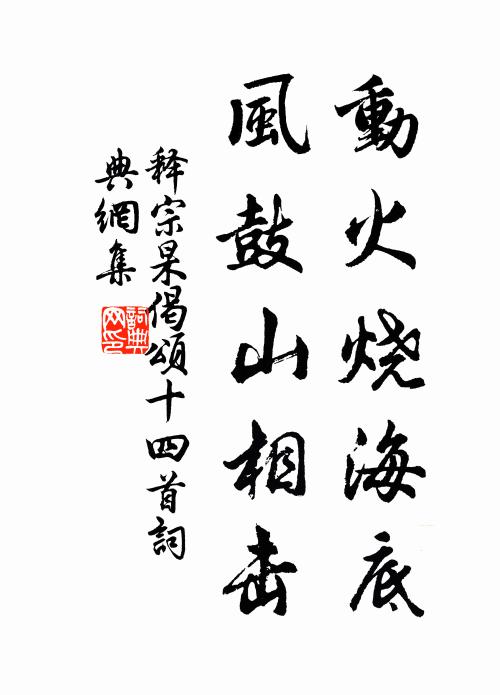 動火烧海底
風鼓山相击
释宗杲偈頌十四首詞
典網集
詞典
网印